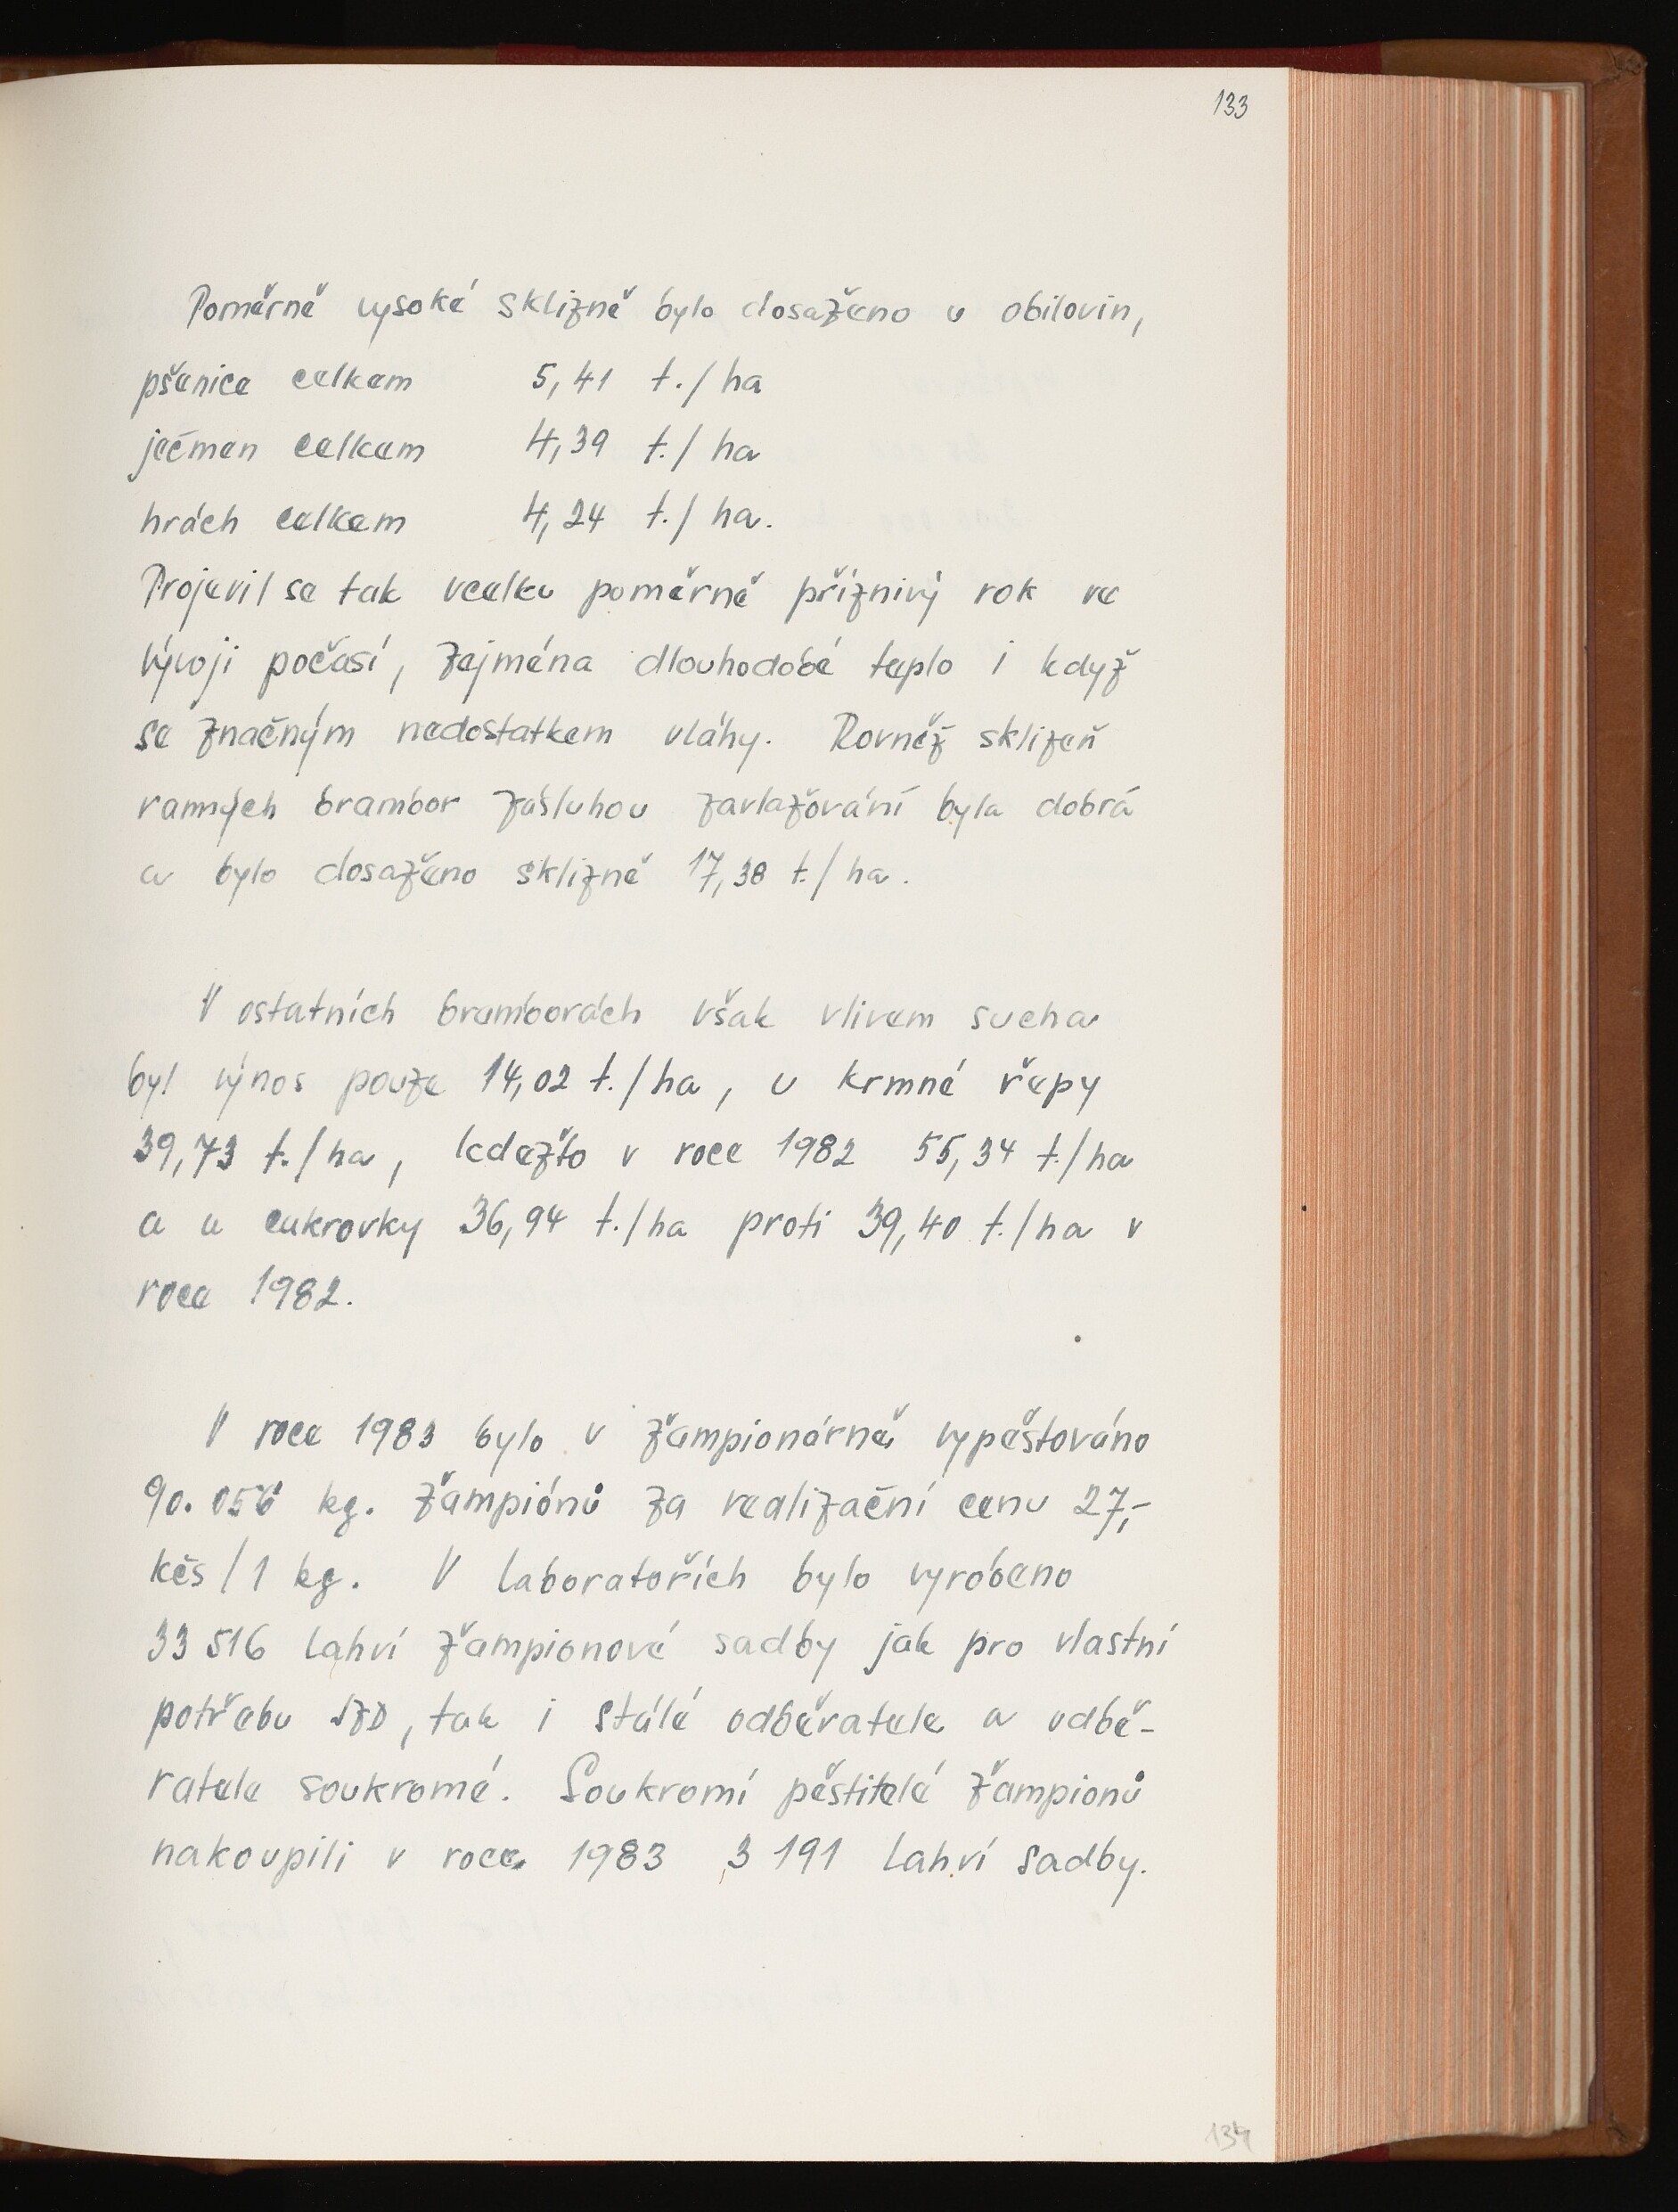 133
Poměrně vysoké sklizně bylo dosaženo u obilovin,
pšenice celkem 5,41 t./ha
ječmen celkem 4,39 t./ha
hrách celkem 4,24 t./ha.
Projevil se tak vcelku poměrně příznivý rok ve
vývoji počasí, zejména dlouhodobé teplo i když
se značným nedostatkem vláhy. Rovněž sklizeň
ranných brambor zásluhou zavlažování byla dobrá
a bylo dosaženo sklizně 17,38 t./ha.
V ostatních bramborách však vlivem sucha
byl výnos pouze 14,02 t./ha, u krmné řepy
39,73 t./ha, kdežto v roce 1982 55,34 t./ha
a u cukrovky 36,94 t./ha proti 39,40 t./ha v
roce 1982.
V roce 1983 bylo v žampionárně vypěstováno
kg. žampiónů za realizační cenu 27,-
kčs/1 kg. V laboratořích bylo vyrobeno
33 516 lahví žampionové sadby jak pro vlastní
potřebu JZD, tak i stálé odběratele a odbě-
ratele soukromé. Soukromí pěstitelé žampionů
nakoupili v roce 1983 3 191 lahví sadby.
134